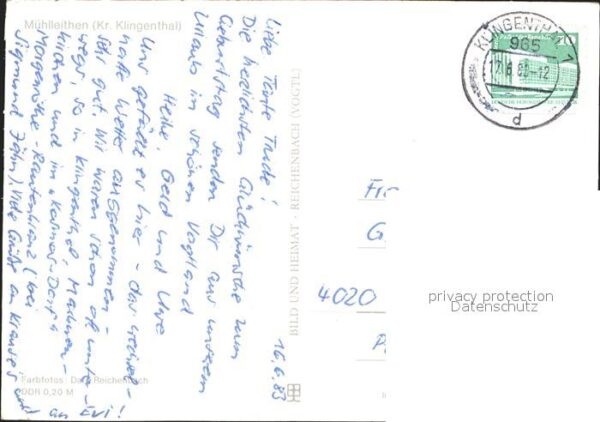 Mühlleithen (Kr. Klingenthal)
16.6.83
Liebe Tante Trude!
Die herzlichsten Glückwünsche zum
Geburtstag senden Dir aus unserem
Urlaub im schönen Vogtland
Heike, Gerd und Uwe
Uns gefällt es hier - das wechsel-
hafte Wetter ausgenommen -
sehr gut. Wir waren schon oft unter-
wegs, so in Klingenthal, Markneu-
kirchen und im "Kosmos-Dorf"
Morgenröthe-Rautenkranz (bei
Sigmund Jähn). Viele Grüße an Krause's und an Evi!
Farbfotos: Darr, Reichenbach
DDR 0,20 M
BILD UND HEIMAT · REICHENBACH (VOGTL)
KLINGENTHAL 1
965
17.6.83-12
d
20
Fr
G
4020
privacy protection
Datenschutz